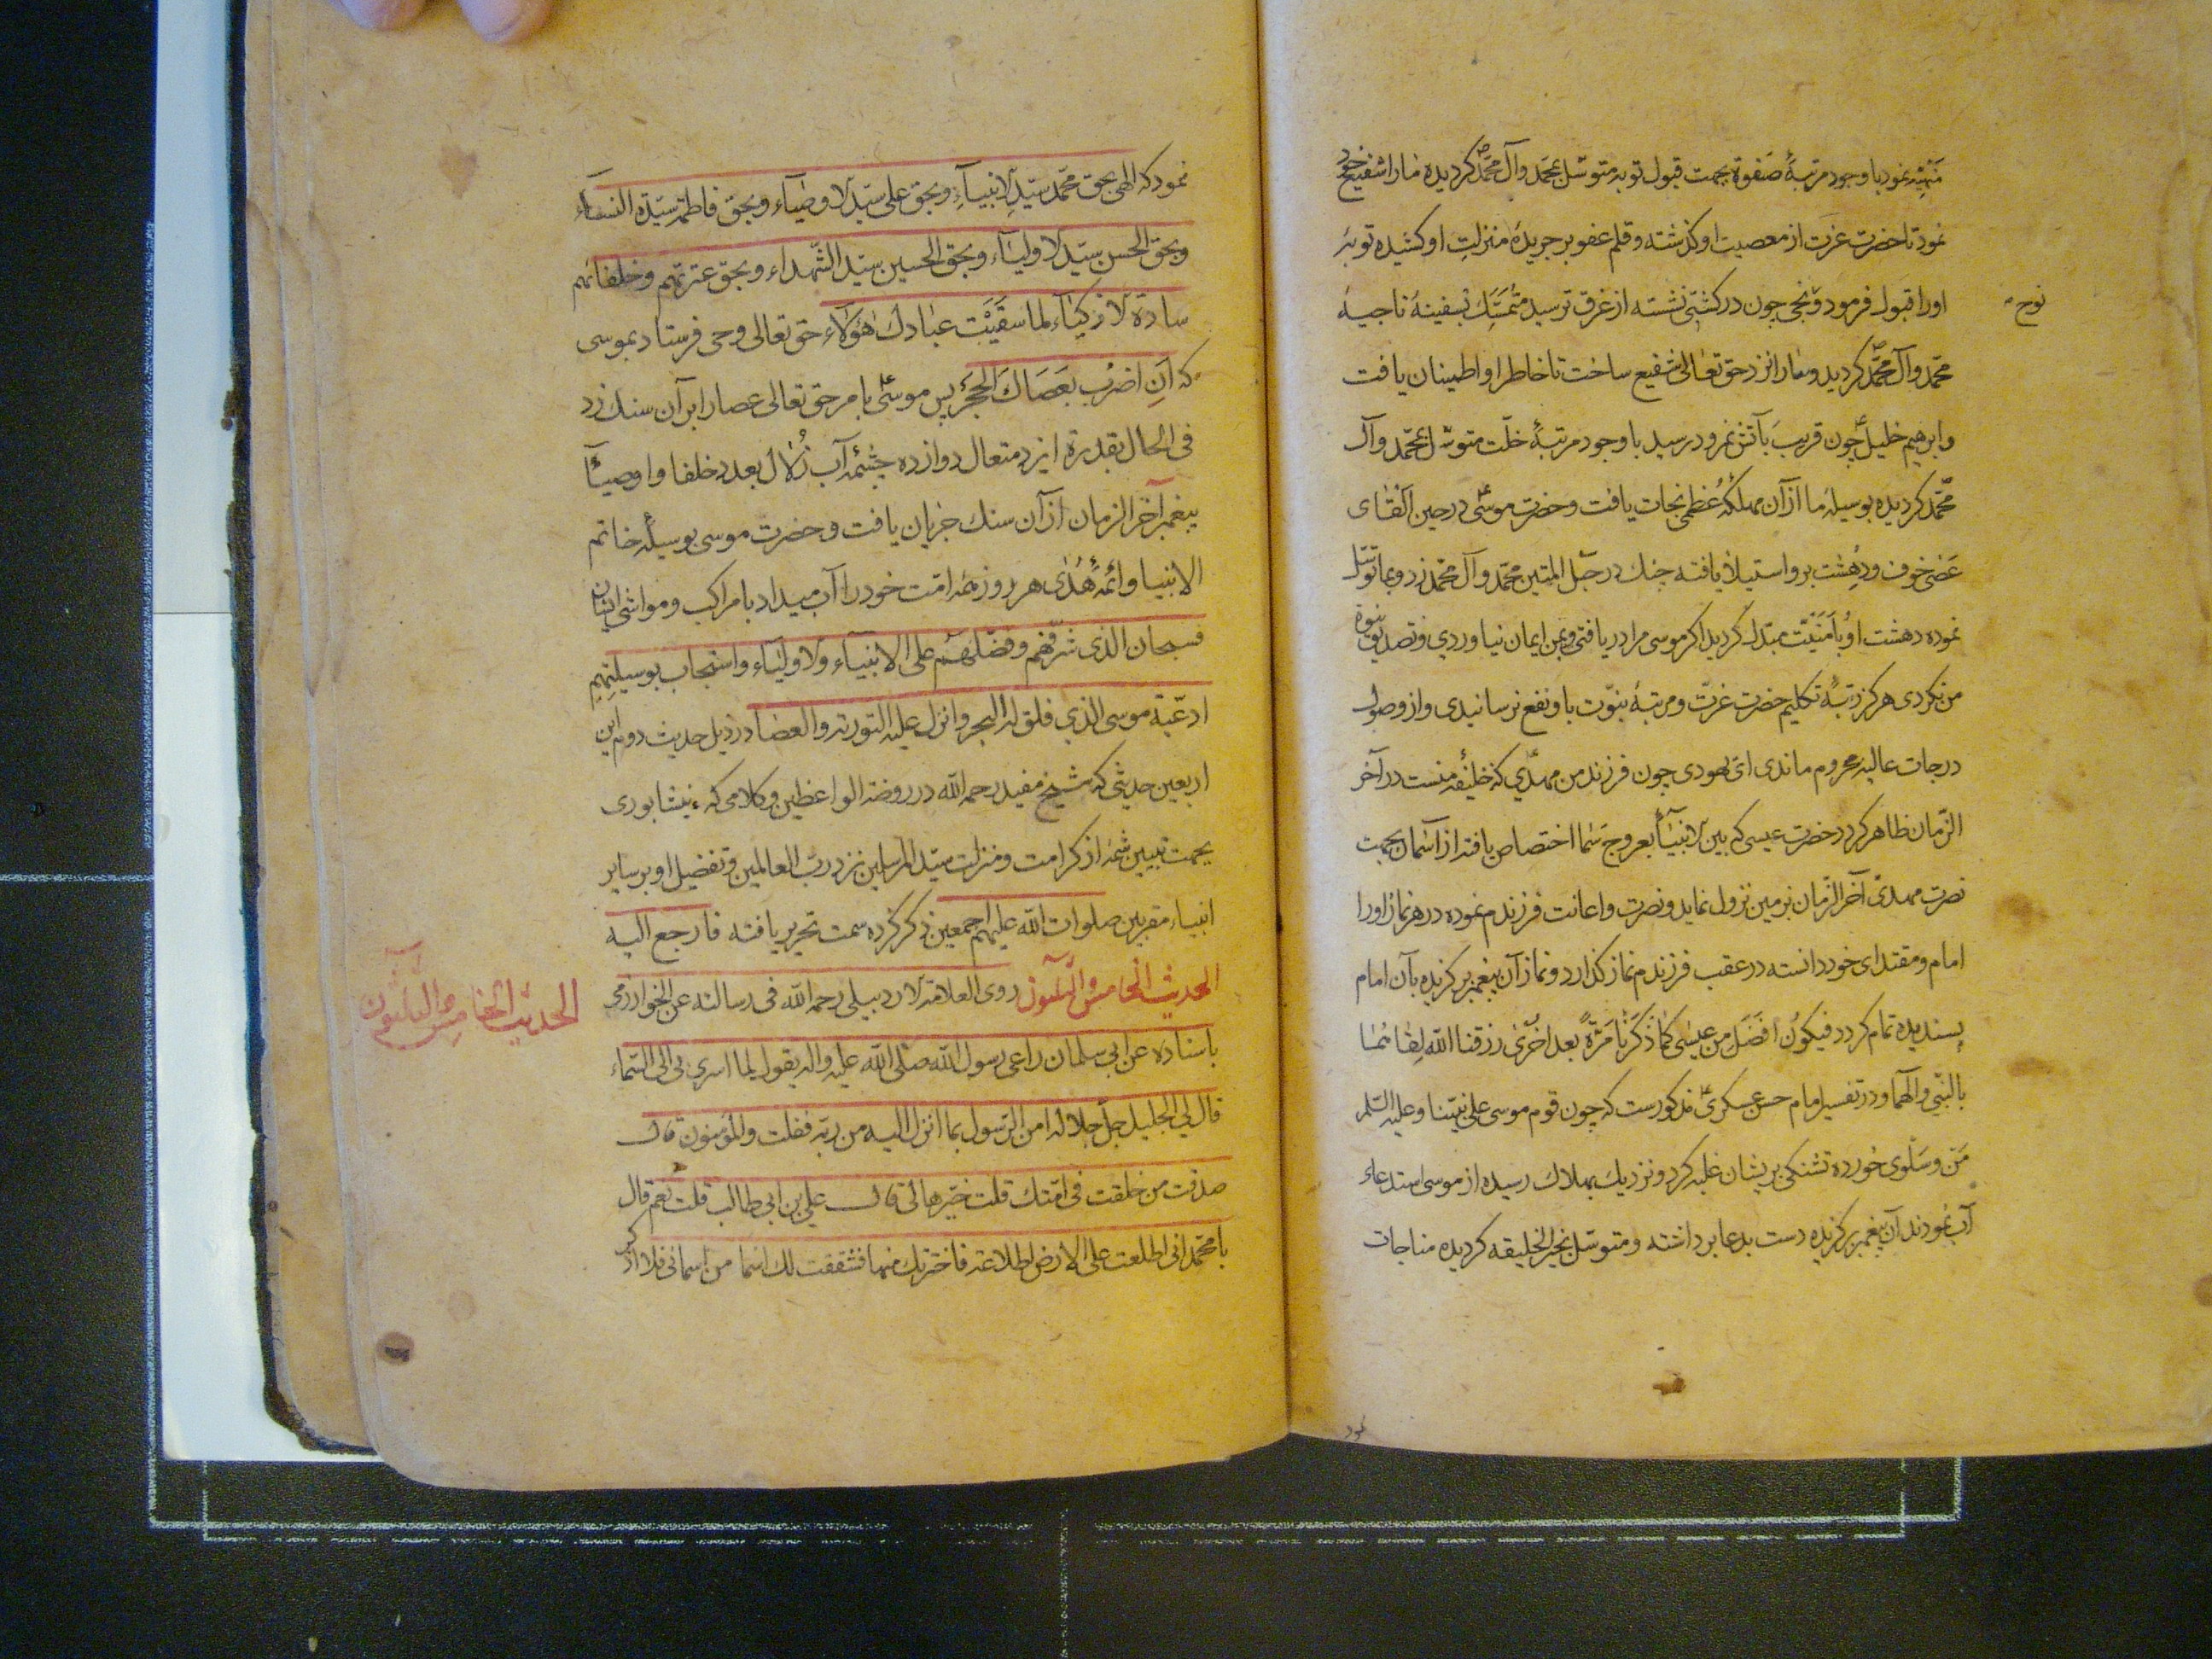 منهیه نمود با وجود مرتبهٔ صَفوة بجهت قبول توبه متوسّل بمحمّد وآل محمّدؐ کردیده مارا شفیع خود
نمود تا حضرت عزت از معصیت او کذشته و قلم عفو بر جریدهٔ منزلتِ او کشیده توبهٔ
اورا قبول فرمود و نجی چون در کشتی نشسته از غرق ترسید متمَسّک بسفینهٔ ناجیهٔ
نوح
محمّد وآل محمّدؐ کردید و مارا نزد حق تعالی شفیع ساخت تا خاطر او اطینان یافت
وابرهیم خلیلؑ چون قریب بآتش نمرود رسید با وجود مرتبهٔ خلّت متوسّل بمحمّد وآل
محّمد کردیده بوسیلهٔ ما از آن مهلکهٔ عُظمی نجات یافت وحضرت موسیؑ در حین القای
عَصٰی خوف و دهشت برو استیلا یافته چنك در حبل المتین محمّد وآل محمّد زد و بما توسّل
نموده دهشت او بامَنیّت مبتدل کردید اکر موسی مرا دریافتی و بمن ایمان نیاوردی وتصدیق بنبوة
من نکردی هرکز رتبهٔ تکلیم حضرت عزّت و مرتبهٔ نبوّت باو نفع نرسانیدی واز وصول
درجات عالیه محروم ماندی ای یهودی چون فرزند من مهدّی که خلیفه منست در آخر
الزّمان ظاهر کردد حضرت عیسی که بین الانبیاء بعروج سَما اختصاص یافته از آسمان بجهت
نصرت مهدیؑ آخر الزّمان بزمین نزول نماید ونصرت واعانت فرزندم نموده در هر نماز اورا
امام ومقتدای خود دانسته در عقب فرزندم نماز کذارد ونماز آن پیغمبر برکزیده بآن امام
پسندیده تمام کردد فیکونُ افضَل من عیسٰی کما ذکرنا مَرّةً بعد اخرٰی رزقنا اللّه لِقائهما
بالنّبی وآلهما ودر تفسیر امام حسن عسکریؑ مذکورست که چون قوم موسی علی نبیّنا وعلیه السّلم
مَنّ وسَلوٰی خورده تشنکی بریشان غلبه کرد ونزدیك بهلاك رسیده از موسی استدعاء
آب نمودند آن پیغمبر برکزیده دست بدعا برداشته ومتوسّل بخیر الخلیقه کردیده مناجات
نمود
نمود که الهی بحق محمّد سیّدِ الانبیآءِ وبحق علی سیّد الاوصیآء وبحق فاطمة سیّدة النسآء
وبحق الحسن سیّد الاولیآء وبحق الحسین سیّد الشهداء وبحق عترتهم وخلفائهم
سادة الازکیآء لما سقَیْتَ عبادك هٰؤلاء حق تعالی وحی فرستاد بموسی
که اَنِ اضرِب بِعَصَاكَ الحجَرَ پس موسیؑ بامر حق تعالی عصارا بر آن سنك زد
فی الحال بقدرة ایزد متعال دوازده چشمه آب زُلال بعدد خلفا واوصیآ
پیغمبر آخر الزمان از آن سنك جریان یافت وحضرت موسی بوسیلهٔ خاتم
الانبیا وائمهٔ هُدٰی هر روز همه امّت خودرا آب میداد با مراکب ومواشی ایشان
فسبحان الذی شرّفهم وفضّلهم علی الانبیاء والاولیاء واستجاب بوسیلتهم
ادعیة موسی الذی فلق له البحر وانزل علیه التوریة والعصا در ذیل حدیث دوم این
اربعین حدیثی که شیخ مفید رحمه اللّه در روضة الواعظین وکلامی که نیشابوری
بجهت تبیین شمه از کرامت ومنزلت سیّد المرسلین نزد ربّ العالمین وتفضیل او بر سایر
انبیاء مقربین صلوات اللّه علیهم اجمعین ذکر کرده سمت تحریر یافته فارجع الیه
الحدیث الخامس والثلثون روی العلامة الاردبیلی رحمه اللّه فی رسالته عن الخوارزمی
الحدیث الخامس والثلثون
باسناده عن ابی سلمان راعی رسول اللّه صلّی اللّه علیه واله یقول لما اسری بی الی السّماء
قال لی الجلیل جلّ جلاله امن الرّسول بما انزل الیه من ربّه فقلت والمؤمنون قال
صدقت من خلفت فی امّتك قلت خیرها لی قال علی بن ابی طالب قلت نعم قال
یا محمّد انی اطلعت علی الارض اطلاعة فاخترتك منها فشققت لك اسما من اسمائی فلا اذکر